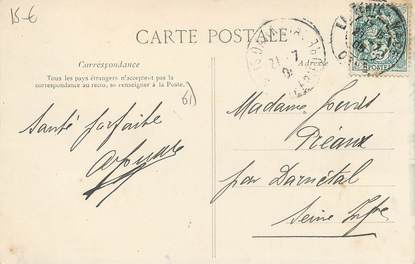 15-6
CARTE POSTALE
Correspondance
Tous les pays étrangers n'acceptent pas la
correspondance au recto, se renseigner à la Poste.
61
Santé parfaite
Madame
Préaux
par Darnétal
Seine Infre